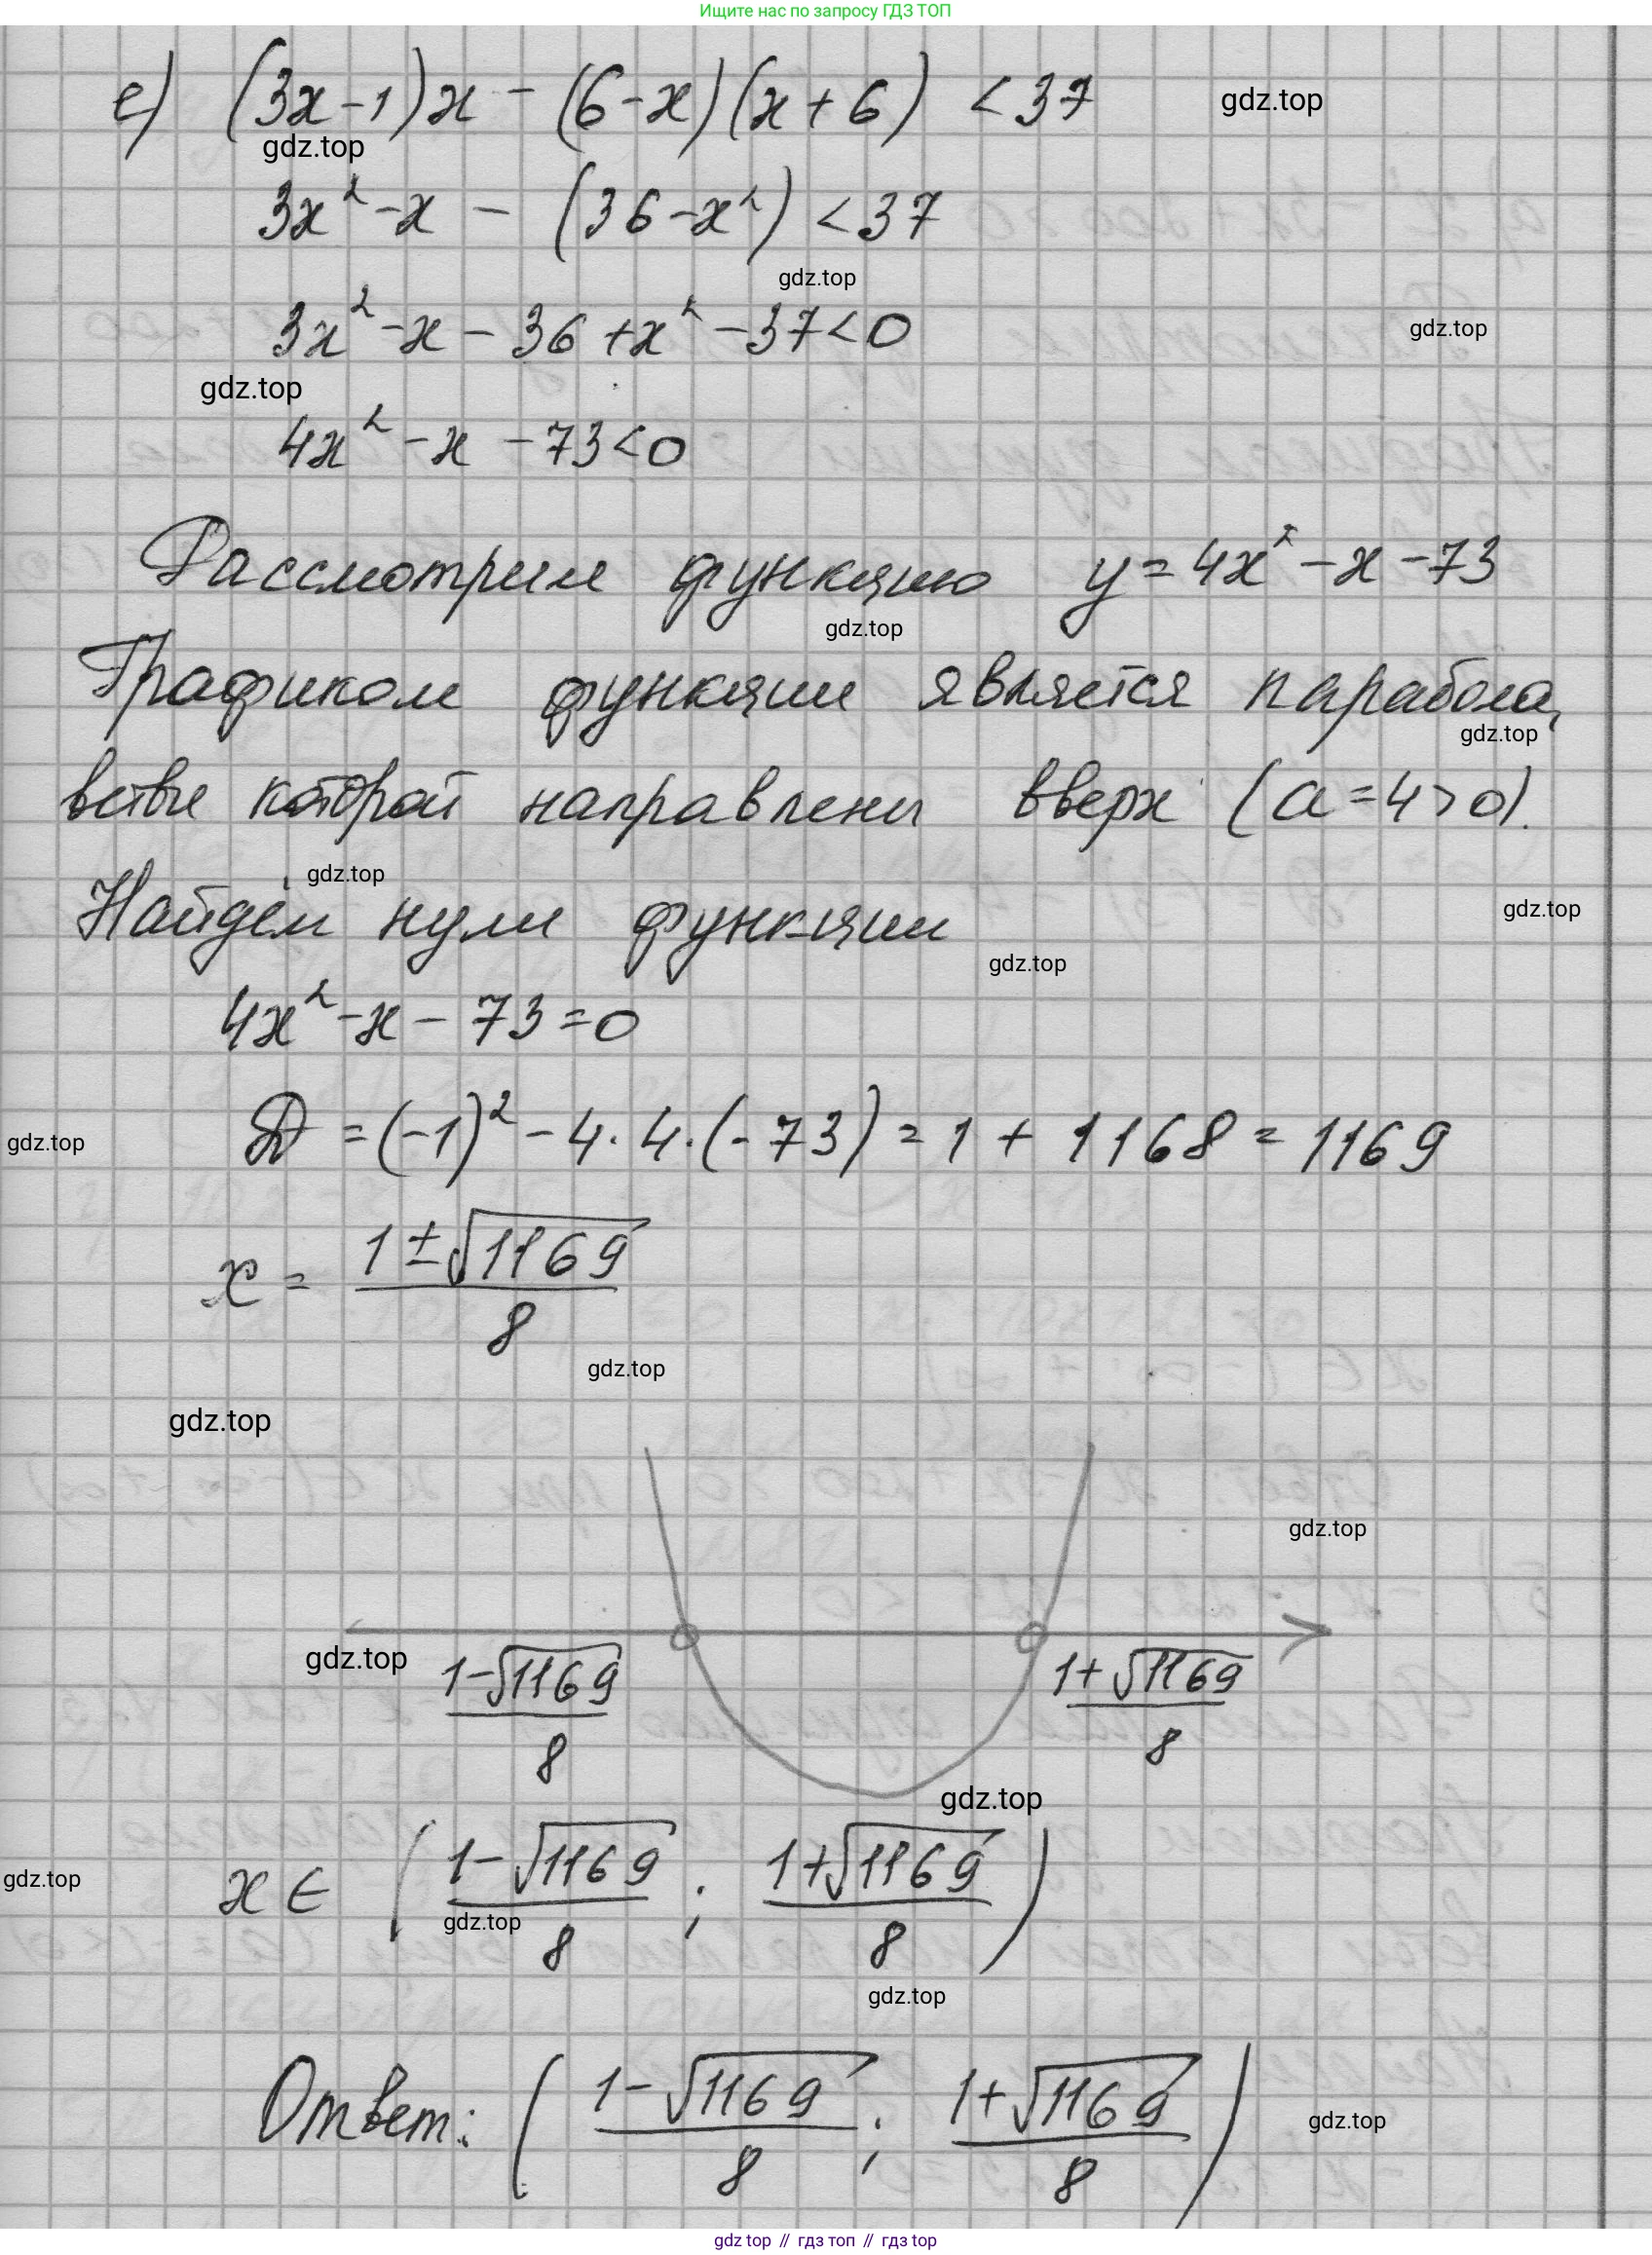 Ищите нас по запросу ГДЗ ТОП
е) (3x-1)x - (6-x)(x+6) < 37
gdz.top
gdz.top
3x² - x - (36-x²) < 37
gdz.top
3x² - x - 36 + x² - 37 < 0
gdz.top
gdz.top
4x² - x - 73 < 0
Рассмотрим функцию y = 4x² - x - 73
gdz.top
Графиком функции является парабола,
gdz.top
ветви которой направлены вверх (a = 4 > 0).
gdz.top
Найдём нули функции
gdz.top
gdz.top
4x² - x - 73 = 0
D = (-1)² - 4·4·(-73) = 1 + 1168 = 1169
gdz.top
x = (1±√1169)/8
gdz.top
gdz.top
gdz.top
gdz.top
(1-√1169)/8 (1+√1169)/8
gdz.top
x ∈ ( (1-√1169)/8 ; (1+√1169)/8 )
gdz.top
gdz.top
gdz.top
Ответ: ( (1-√1169)/8 ; (1+√1169)/8 )
gdz.top
gdz top // гдз топ // gdz top